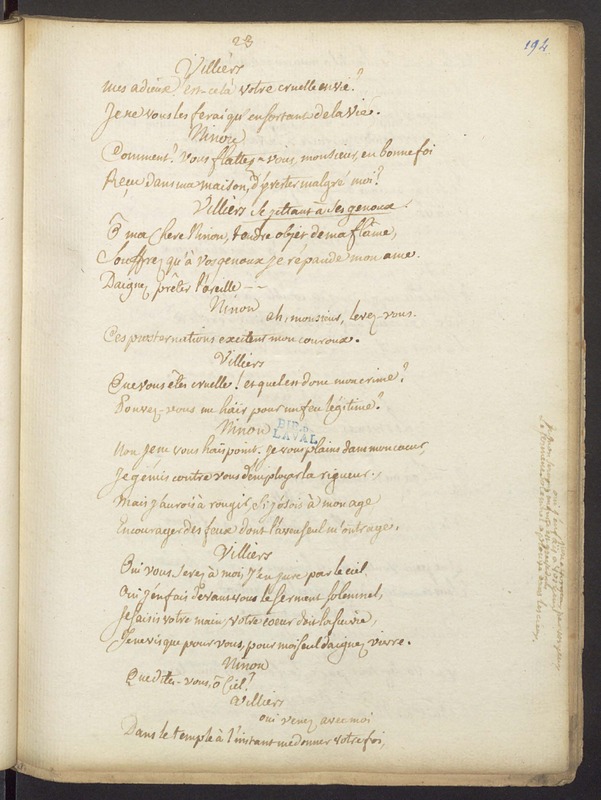 23
194
Villiers
mes adieux est-ce là votre cruelle envie?
Je ne vous les ferai qu'en sortant de la vie.
Ninon
Comment? vous flattez-vous, monsieur, en bonne foi
Reçu dans ma maison, d'y rester malgré moi?
Villiers se jettant à ses genoux.
Ô ma chere Ninon, tendre objet de ma flâme,
Souffrez qu'à vos genoux je repande mon ame.
Daignez prêter l'oreille --
Ninon
ah, monsieur, levez-vous.
Ces prosternations excitent mon couroux.
Villiers
Que vous êtes cruelle! et quel est donc mon crime?
Pouvez-vous me haïr pour un feu légitime?
Ninon
BIB. DE
LAVAL
Non je ne vous hais point. je vous plains dans mon coeur,
Je gemis contre vous d'emploiyer la rigueur.
Mais j'aurois à rougir, si j'osois à mon age
Encourager des feux dont l'aveu seul m'outrage.
Villiers
Oui vous serez à moi, j'en jure par le ciel.
Oui j'en fais devant vous le serment solemnel,
Je saisis votre main, votre coeur doit la suivre,
Je ne vis que pour vous, pour moi seul daignez vivre.
Ninon
Que dites-vous, ô Ciel?
Villiers
oui venez avec moi
Dans le temple à l'instant me donner votre foi,